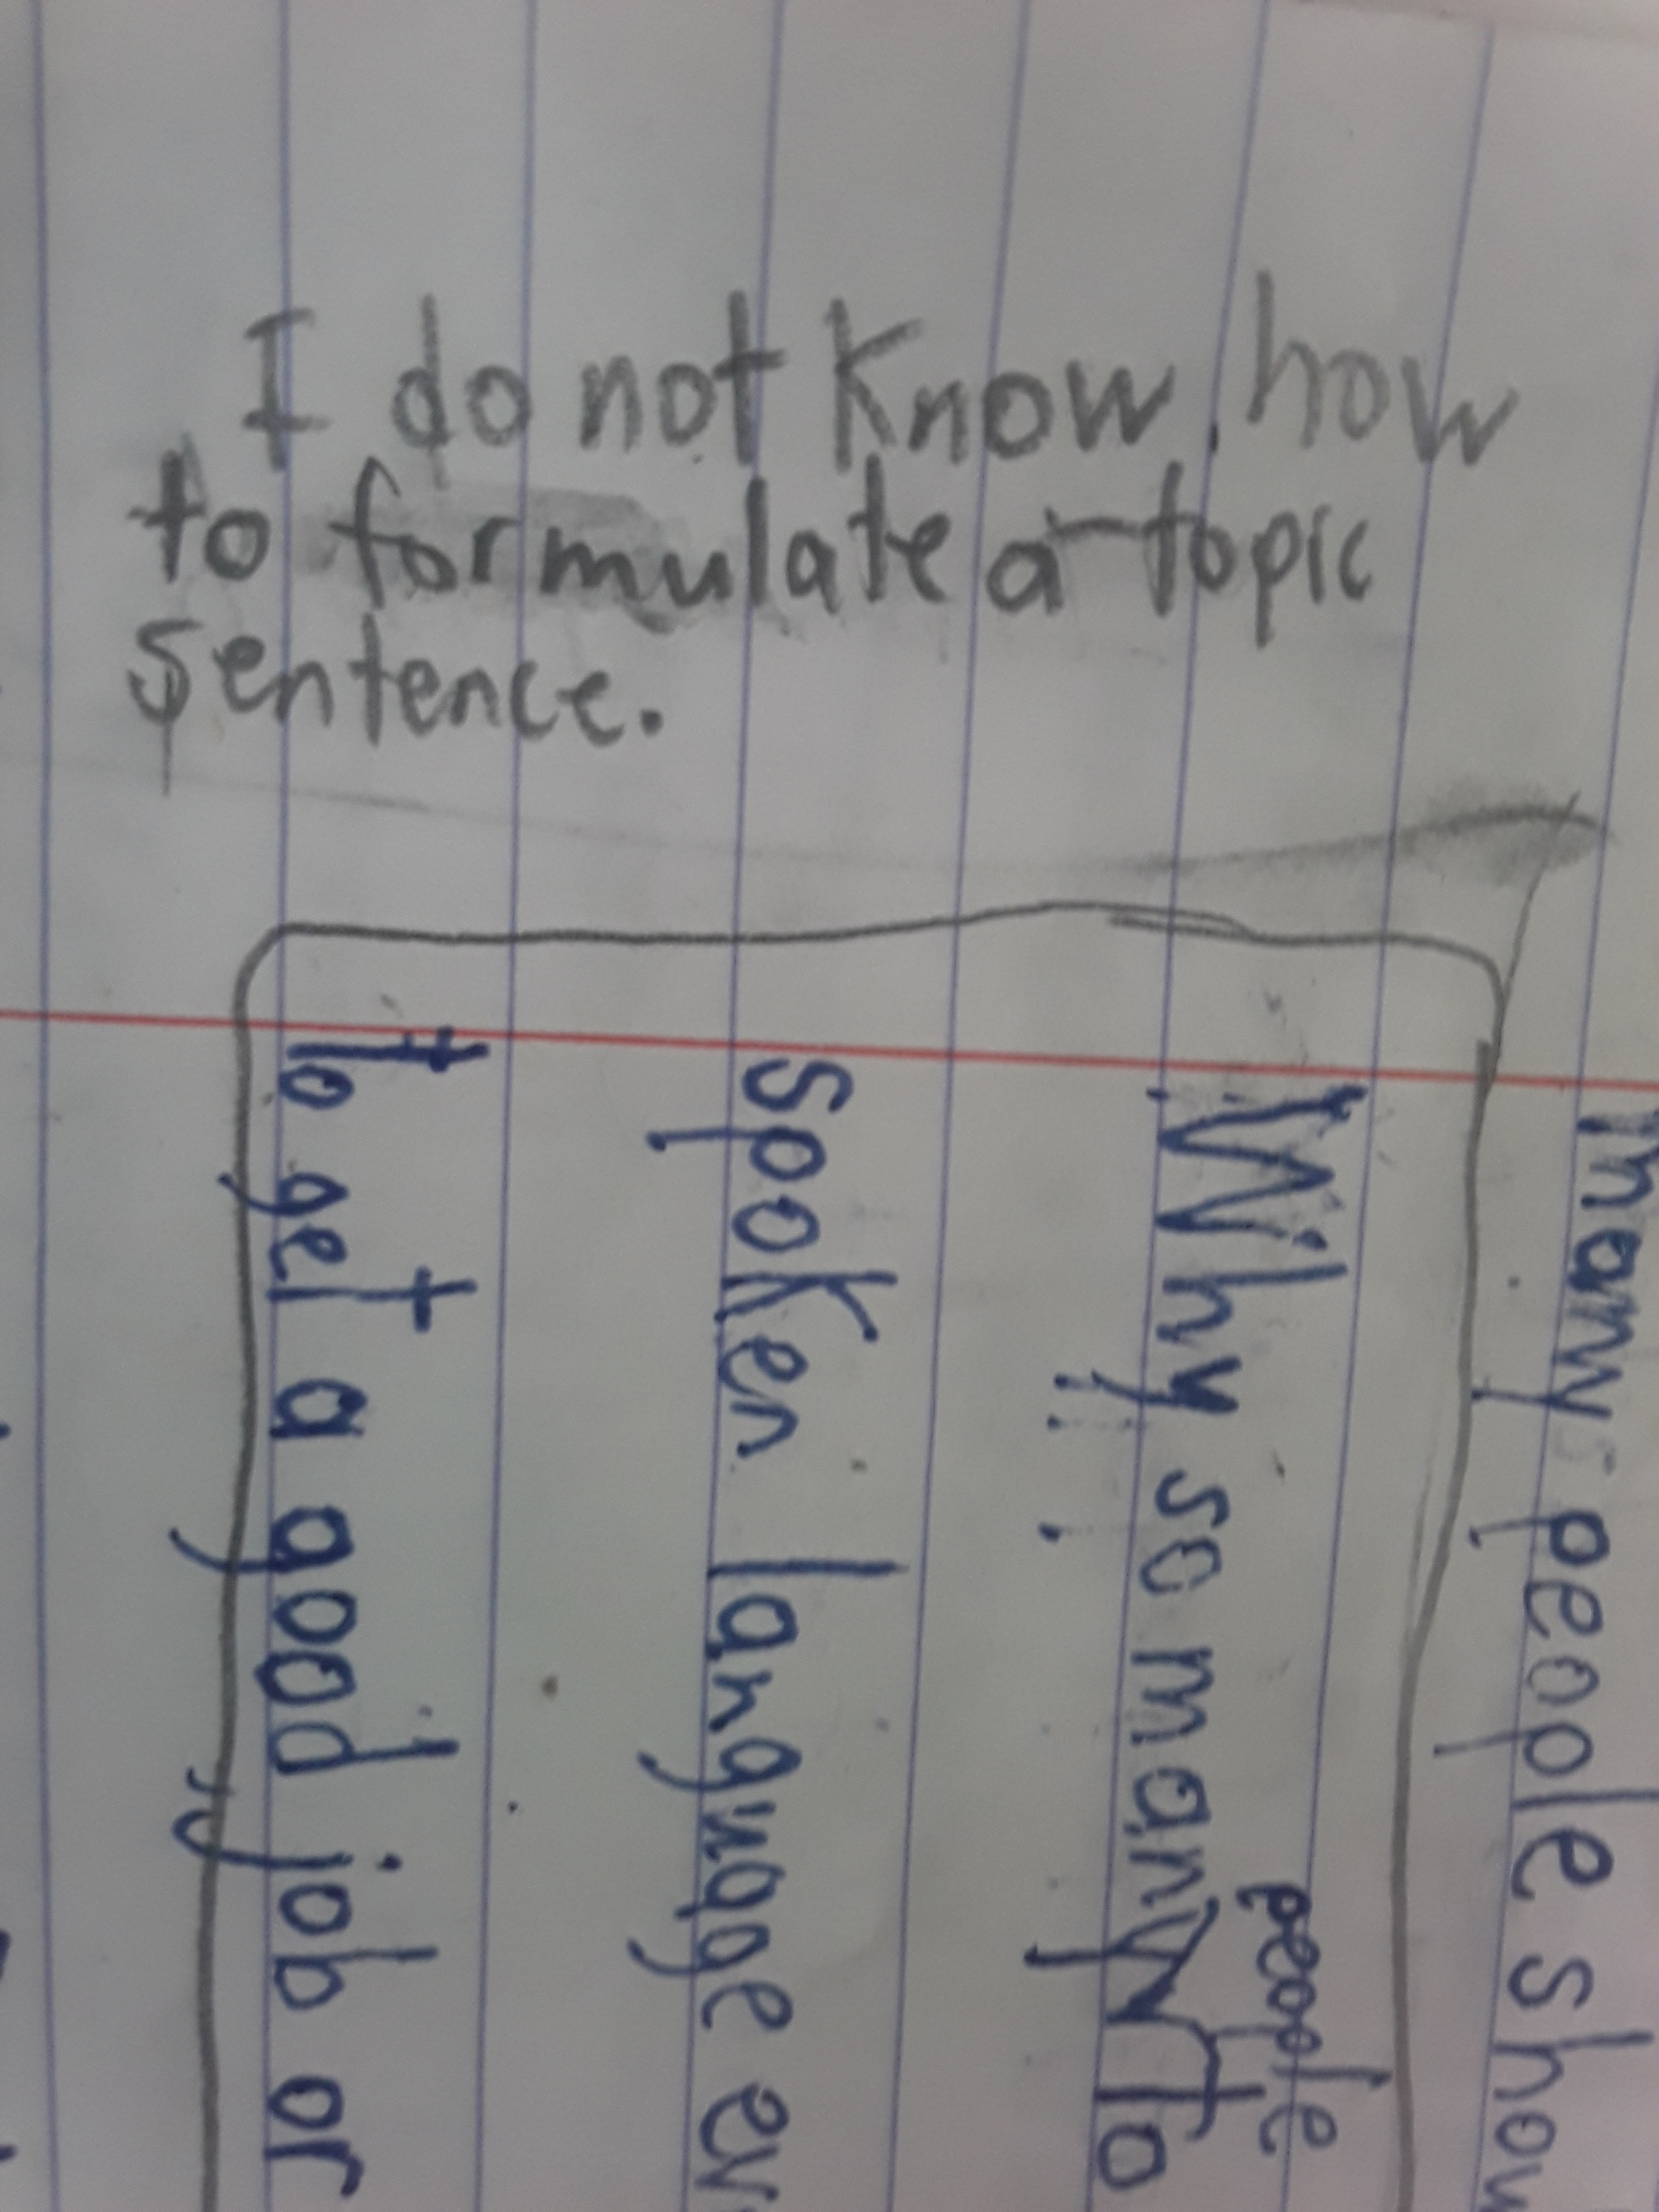 I do not know how
to formulate a topic
sentence.
many people
Why so many people to
spoken language
to get a good job or